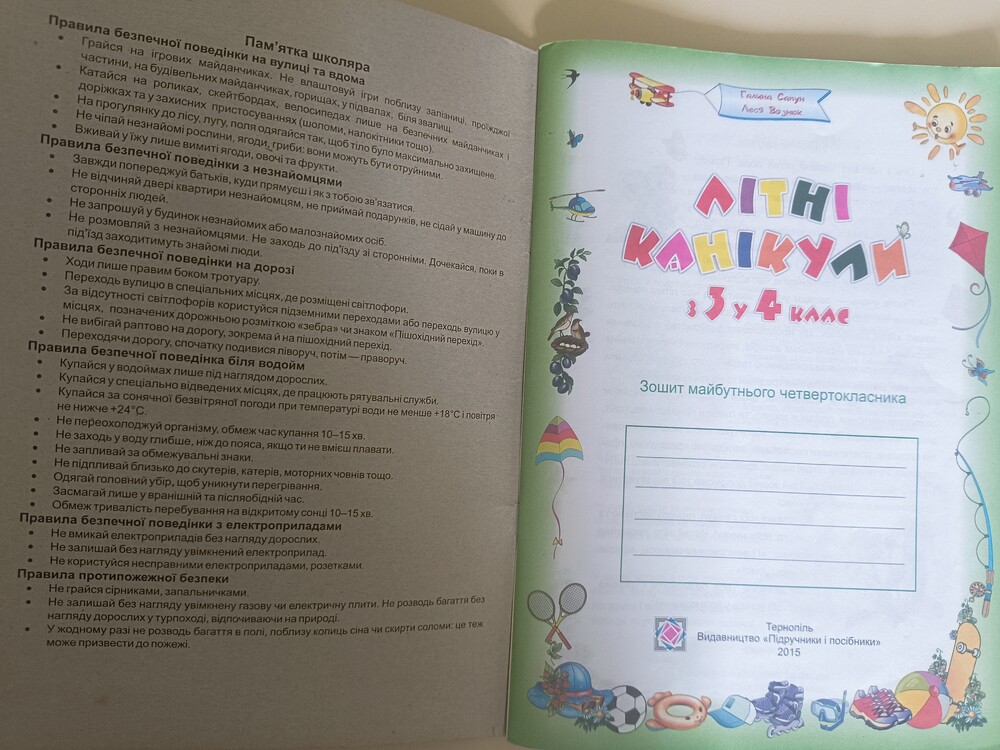 Пам'ятка школяра
Правила безпечної поведінки на вулиці та вдома
• Грайся на ігрових майданчиках. Не влаштовуй ігри поблизу залізниці, проїжджої
частини, на будівельних майданчиках, горищах, у підвалах, біля звалищ.
• Катайся на роликах, скейтбордах, велосипедах лише на безпечних майданчиках і
доріжках та у захисних пристосуваннях (шоломи, налокітники тощо).
• На прогулянку до лісу, лугу, поля одягайся так, щоб тіло було максимально захищене.
• Не чіпай незнайомі рослини, ягоди, гриби: вони можуть бути отруйними.
• Вживай у їжу лише вимиті ягоди, овочі та фрукти.
Правила безпечної поведінки з незнайомцями
• Завжди попереджуй батьків, куди прямуєш і як з тобою зв'язатися.
• Не відчиняй двері квартири незнайомцям, не приймай подарунків, не сідай у машину до
сторонніх людей.
• Не запрошуй у будинок незнайомих або малознайомих осіб.
• Не розмовляй з незнайомцями. Не заходь до під'їзду зі сторонніми. Дочекайся, поки в
під'їзд заходитимуть знайомі люди.
Правила безпечної поведінки на дорозі
• Ходи лише правим боком тротуару.
• Переходь вулицю в спеціальних місцях, де розміщені світлофори.
• За відсутності світлофорів користуйся підземними переходами або переходь вулицю у
місцях, позначених дорожньою розміткою «зебра» чи знаком «Пішохідний перехід».
• Не вибігай раптово на дорогу, зокрема й на пішохідний перехід.
• Переходячи дорогу, спочатку подивися ліворуч, потім — праворуч.
Правила безпечної поведінка біля водойм
• Купайся у водоймах лише під наглядом дорослих.
• Купайся у спеціально відведених місцях, де працюють рятувальні служби.
• Купайся за сонячної безвітряної погоди при температурі води не менше +18°С і повітря
не нижче +24°С.
• Не переохолоджуй організму, обмеж час купання 10–15 хв.
• Не заходь у воду глибше, ніж до пояса, якщо ти не вмієш плавати.
• Не запливай за обмежувальні знаки.
• Не підпливай близько до скутерів, катерів, моторних човнів тощо.
• Одягай головний убір, щоб уникнути перегрівання.
• Засмагай лише у вранішній та післяобідній час.
• Обмеж тривалість перебування на відкритому сонці 10–15 хв.
Правила безпечної поведінки з електроприладами
• Не вмикай електроприладів без нагляду дорослих.
• Не залишай без нагляду увімкнений електроприлад.
• Не користуйся несправними електроприладами, розетками.
Правила протипожежної безпеки
• Не грайся сірниками, запальничками.
• Не залишай без нагляду увімкнену газову чи електричну плити. Не розводь багаття без
нагляду дорослих у турпоході, відпочиваючи на природі.
• У жодному разі не розводь багаття в полі, поблизу копиць сіна чи скирти соломи: це теж
може призвести до пожежі.
Галина Сапун
Леся Вознюк
ЛІТНІ
КАНІКУЛИ
з 3 у 4 клас
Зошит майбутнього четвертокласника
Тернопіль
Видавництво «Підручники і посібники»
2015